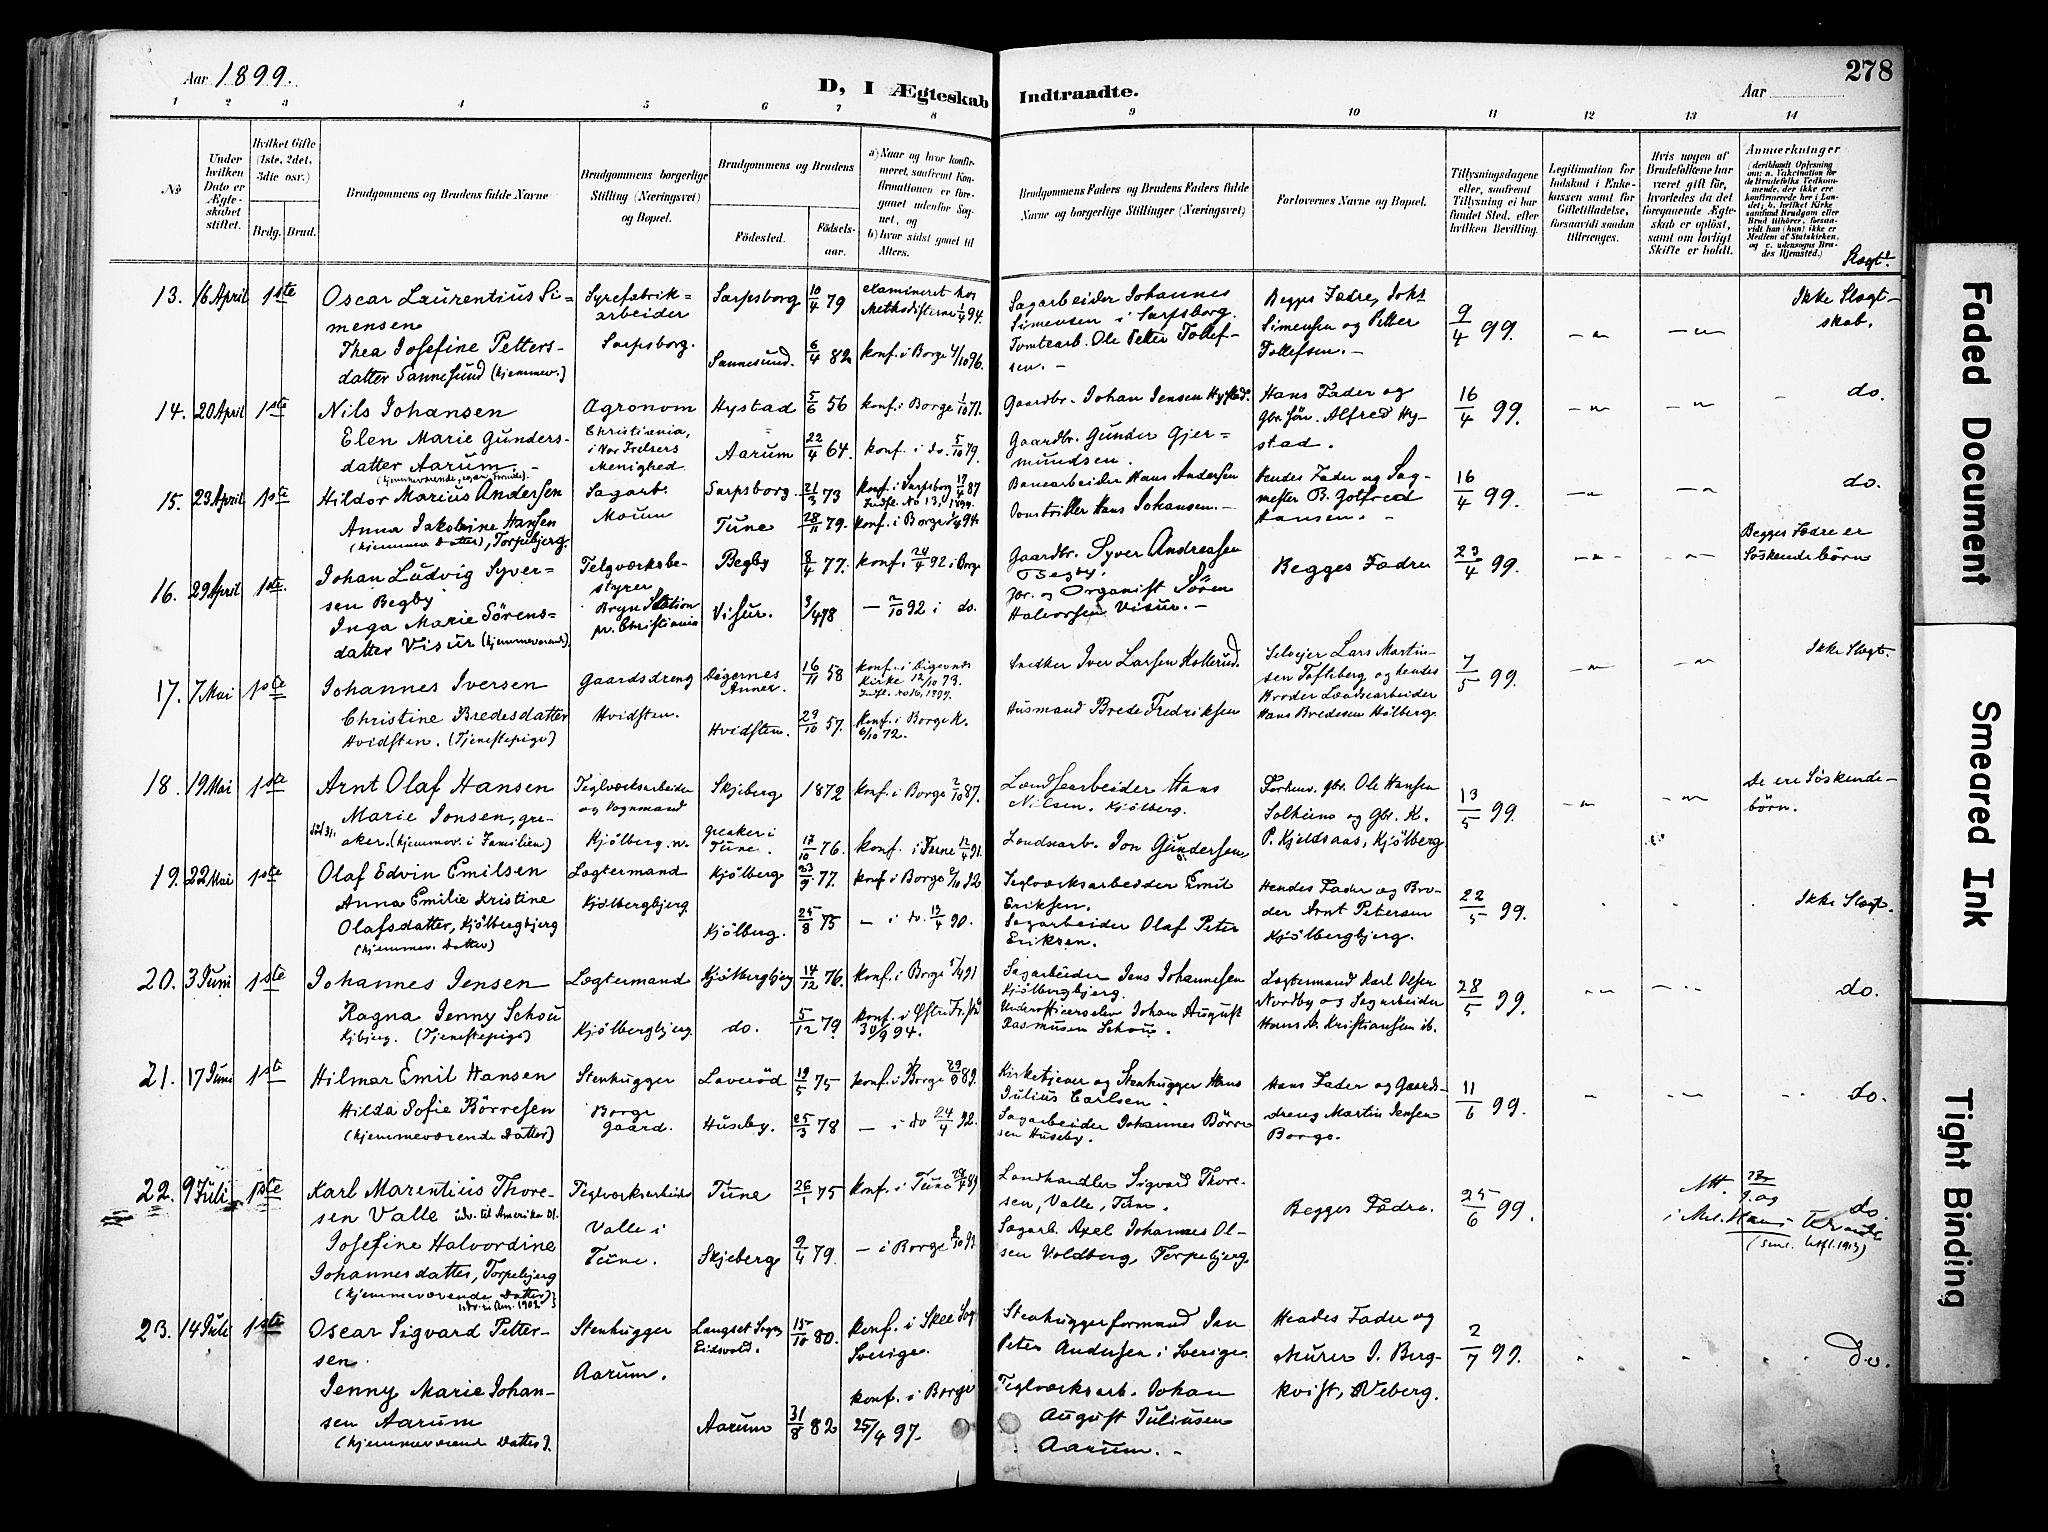 Aar 1899.
D, I Ægteskab Indtraadte.
Aar
278
1 2 3 4 5 6 7 8 9 10 11 12 13 14
No
Under hvilken Dato er Ægteskabet stiftet.
Hvilket Gifte (1ste, 2det, 3die osr.)
Brdg. Brud.
Brudgommens og Brudens fulde Navne
Brudgommens borgerlige Stilling (Næringsvei) og Bopæl.
Brudgommens og Brudens
Fødested.
Fødselsaar.
a) Naar og hvor konfirmeret, saafremt Konfirmationen er foregaaet udenfor Sognet, og
b) hvor sidst gaaet til Alters.
Brudgommens Faders og Brudens Faders fulde Navne og borgerlige Stillinger (Næringsvei)
Forlovernes Navne og Bopæl.
Tillysningsdagene eller, saafremt Tillysning ei har fundet Sted, efter hvilken Bevilling.
Legitimation for Indskud i Enkekassen samt for Giftetilladelse, forsaavidt saadan tiltrænges.
Hvis nogen af Brudefolkene har været gift før, hvorledes da det foregaaende Ægteskab er opløst, samt om lovligt Skifte er holdt.
Anmærkninger
(deriblandt Oplysning om: a. Vakcination for de Brudefolks Vedkommende, der ikke ere konfirmerede her i Landet; b. hvilket Kirkesamfund Brudgom eller Brud tilhører, forsaavidt han (hun) ikke er Medlem af Statskirken, og c. udensogns Brudes Hjemsted.)
Slægt.
13. 16 April 1ste Oscar Laurentius Simensen
Syrefabrikarbeider Sarpsborg.
Sarpsborg 10/4 79 examineret hos Methodisterne 1/4 94.
Thea Josefine Pettersdatter Sannesund (hjemmev.)
Sannesund. 6/4 82 konf. i Borge 4/10 96.
Sagarbeider Johannes Simensen i Sarpsborg.
Tomtearb. Ole Petter Tollefsen. -
Begges Fædre, Johs Simensen og Petter Tollefsen. -
9/4 99.
Ikke Slægtskab.
14. 20 April 1ste Nils Johansen
Agronom Christiania, i Vor Frelsers Menighed.
Hystad 5/6 56 konf. i Borge 1/10 71.
Elen Marie Gundersdatter Aarum. -
Aarum 22/4 64. konf. i do. 5/10 79.
Gaardbr. Johan Jensen Hystad.
Gaardbr. Gunder Gjermundsen.
Hans Fader og Gbr.søn. Alfred Hystad.
16/4 99. do.
15. 23 April 1ste Hildor Marius Andersen
Sagarb. Moum
Sarpsborg. 21/3 73 konf. i Sarpsborg 17/4 87
Indfl. No 13, 1899.
Anna Jakobine Hansen (hjemmev. Datter), Torpebjerg.
Tune 28/11 79. konf. i Borge 94
Banearbeider Hans Andersen
Hans Johansen. -
Hendes Fader og Sagmester B. Gotfred Hansen. -
16/4 99. do.
16. 29 April 1ste. Johan Ludvig Syversen Begby
Teglværksbestyrer Bryn Station pr. Christiania
Begby 8/4 77. konf. 24/4 92 i Borge
Inga Marie Sörensdatter Visur (hjemmeværende).
Visur. 3/4 78 - 2/10 92 i do.
Gaardbr. Syver Andreasen Begby.
Gbr. og Organist Sören Halvorsen Visur. -
Begges Fædre 23/4 99.
Begges Fædre er Söskendebörn
17. 7 Mai 1ste Johannes Iversen
Gaardsdreng Hvidsten.
Digernes Annex. 16/11 58 konf. i Digernes Kirke 12/10 73.
Indfl. No 16, 1899.
Christine Bredesdatter Hvidsten. (Tjenestepige)
Hvidsten. 29/10 57. konf. i Borge K. 6/10 72.
Snedker Iver Larsen Kollerud.
Husmand Brede Fredriksen
Selveier Lars Martinsen Tofteberg og hendes Broder Landsearbeider Hans Bredesen Hölberg.
7/5 99. Ikke Slægt.
18. 19 Mai 1ste Arnt Olaf Hansen
Teglværksarbeider og Vognmand Kjölberg.
Skjeberg 1872 konf. i Borge 2/10 87.
Marie Jonsen, Greaker. (hjemmev. i Familien)
Greaker i Tune. 17/10 76. konf. i Tune 12/4 91.
Landsearbeider Hans Nilsen. Kjölberg.
Landsearb. Jon Gundersen,
Forhenv. Gbr. Ole Hansen Solheim og Gbr. K. P. Kjeldsaas, Kjölberg
13/5 99.
De ere Söskendebörn.
19. 22 Mai 1ste Olaf Edvin Emilsen
Lægtermand Kjölbergbjerg.
Kjölberg 23/9 77. konf i Borge 2/10 92
Anna Emilie Kristine Olafsdatter, Kjölbergbjerg (hjemmev. Datter)
Kjölberg. 25/8 75 - i do. 13/4 90.
Teglværksarbeider Emil Eriksen.
Sagarbeider Olaf Peter Eriksen.
Hendes Fader og Broder Arnt Petersen Kjölbergbjerg.
22/5 99. Ikke Slægt.
20. 3 Juni 1ste Johannes Jensen
Lægtermand Kjölbergbjerg
Kjölbergbjerg 14/12 76. konf. i Borge 5/4 91
Ragna Jenny Schou Kjbjerg. (Tjenestepige)
do. 5/12 79 konf. i Østre Fr.stad 30/9 94.
Sagarbeider Jens Johannesen Kjölbergbjerg.
Underofficerselev Johan August Rasmusen Schou.
Lægtermand Karl Olsen Nordby og Sagarbeider Hans A. Kristiansen ib.
28/5 99. do.
21. 17 Juni 1ste Hilmar Emil Hansen
Stenhugger Borge gaard.
Laveröd 19/5 75 konf. i Borge 29/9 89.
Hilda Sofie Börresen (hjemmeværende Datter)
Huseby. 25/3 78 - i do 24/4 92.
Kirketjener og Stenhugger Hans Julius Carlsen.
Sagarbeider Johannes Börresen Huseby.
Hans Fader og Gaardsdreng Martin Jensen Borge.
11/6 99. do.
22. 9 Juli 1ste Karl Marentius Thoresen Valle
udv. til Amerika
Teglværksarbeider Valle i Tune.
Tune 26/1 75 konf. i Tune 89
Josefine Halvordine Johannesdatter, Torpebjerg (hjemmeværende Datter)
udv. til Am. 1902.
Skjeberg 9/4 79. - i Borge 8/10 93
Landhandler Sigvard Thoresen, Valle, Tune.
Sagarb. Axel Johannes Olsen Voldberg, Torpebjerg.
Begges Fædre. 25/6 99.
do.
23. 14 Juli 1ste Oscar Sigvard Pettersen.
Stenhugger Aarum.
Langset Sogn, Eidsvold. 15/10 80. konf. i Skee Sogn Sverige.
Jenny Marie Johansen Aarum (hjemmeværende Datter).
Aarum 31/8 82 konf. i Borge 25/4 97.
Stenhuggerformand Jan Peter Andersen i Sverige
Teglværksarb. Johan August Juliusen Aarum. -
Hendes Fader og Murer J. Bergkvist, Veberg.
2/7 99. Do.
Faded Document
Smeared Ink
Tight Binding